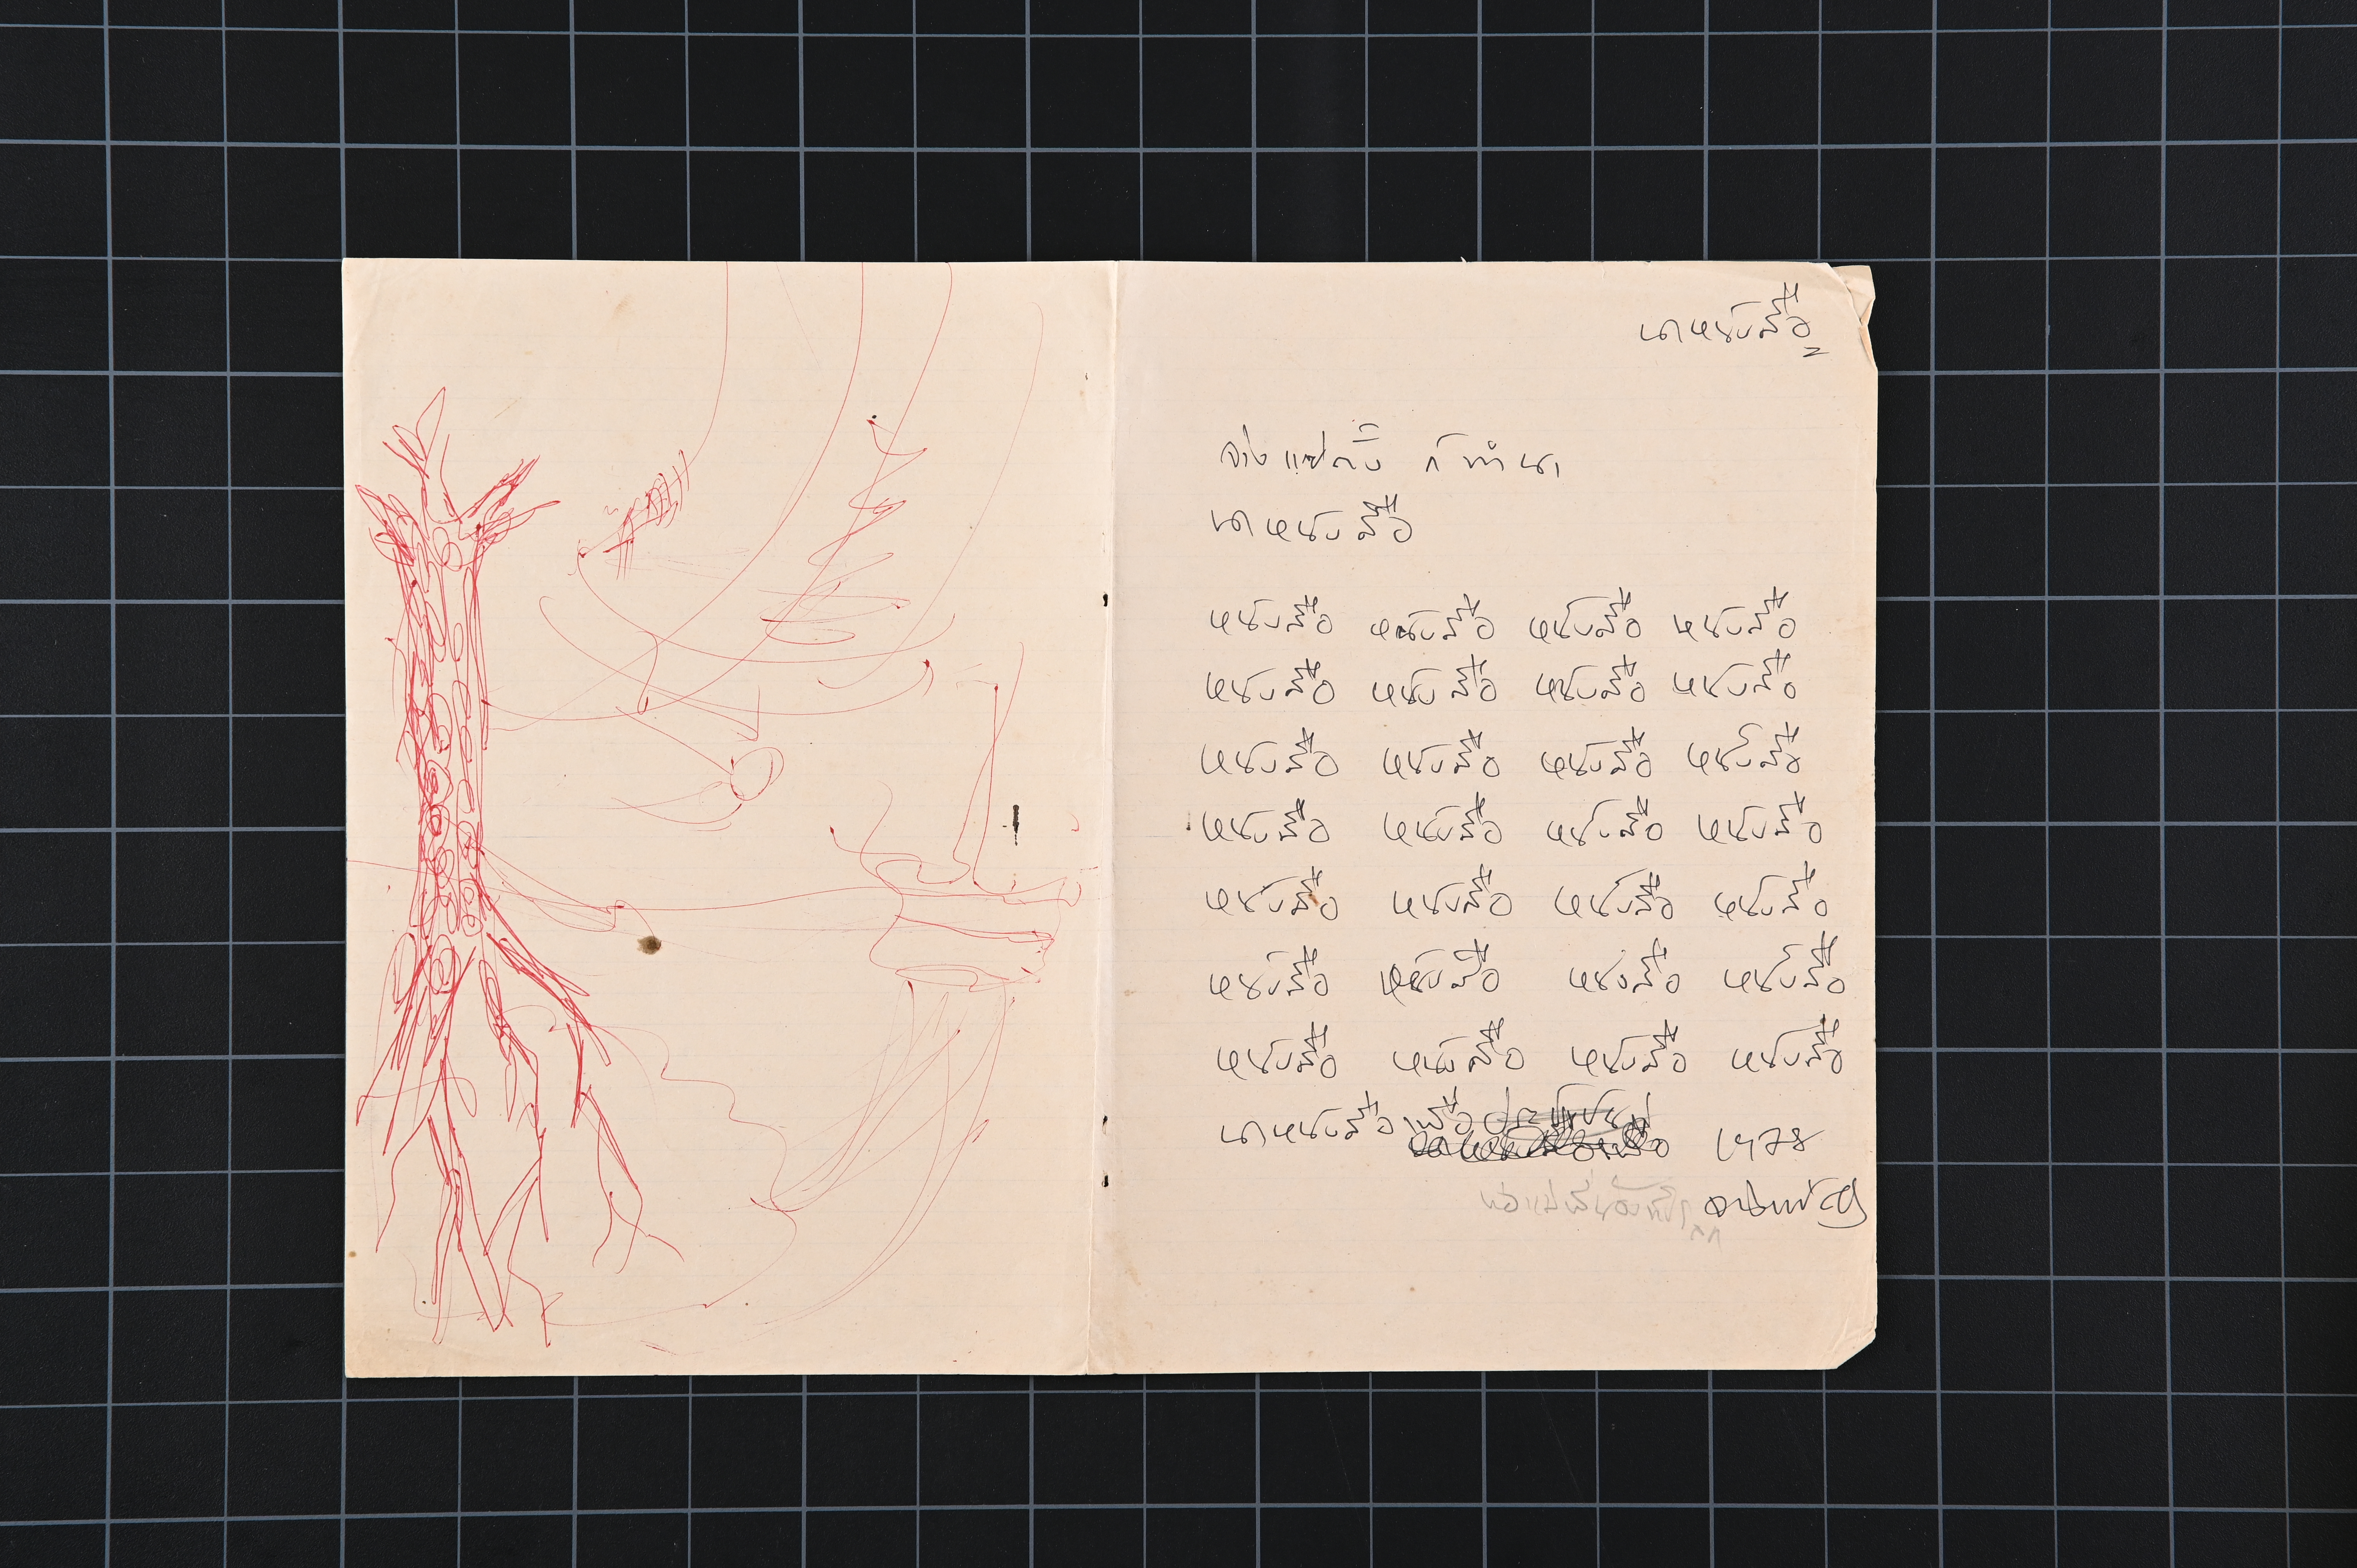 นาหนังสือ
จ่าง แซ่ตั้ง ก็ทำนา
นาหนังสือ
หนังสือ หนังสือ หนังสือ หนังสือ
หนังสือ หนังสือ หนังสือ หนังสือ
หนังสือ หนังสือ หนังสือ หนังสือ
หนังสือ หนังสือ หนังสือ หนังสือ
หนังสือ หนังสือ หนังสือ หนังสือ
หนังสือ หนังสือ หนังสือ หนังสือ
หนังสือ หนังสือ หนังสือ หนังสือ
นาหนังสือ เพื่อ 1978